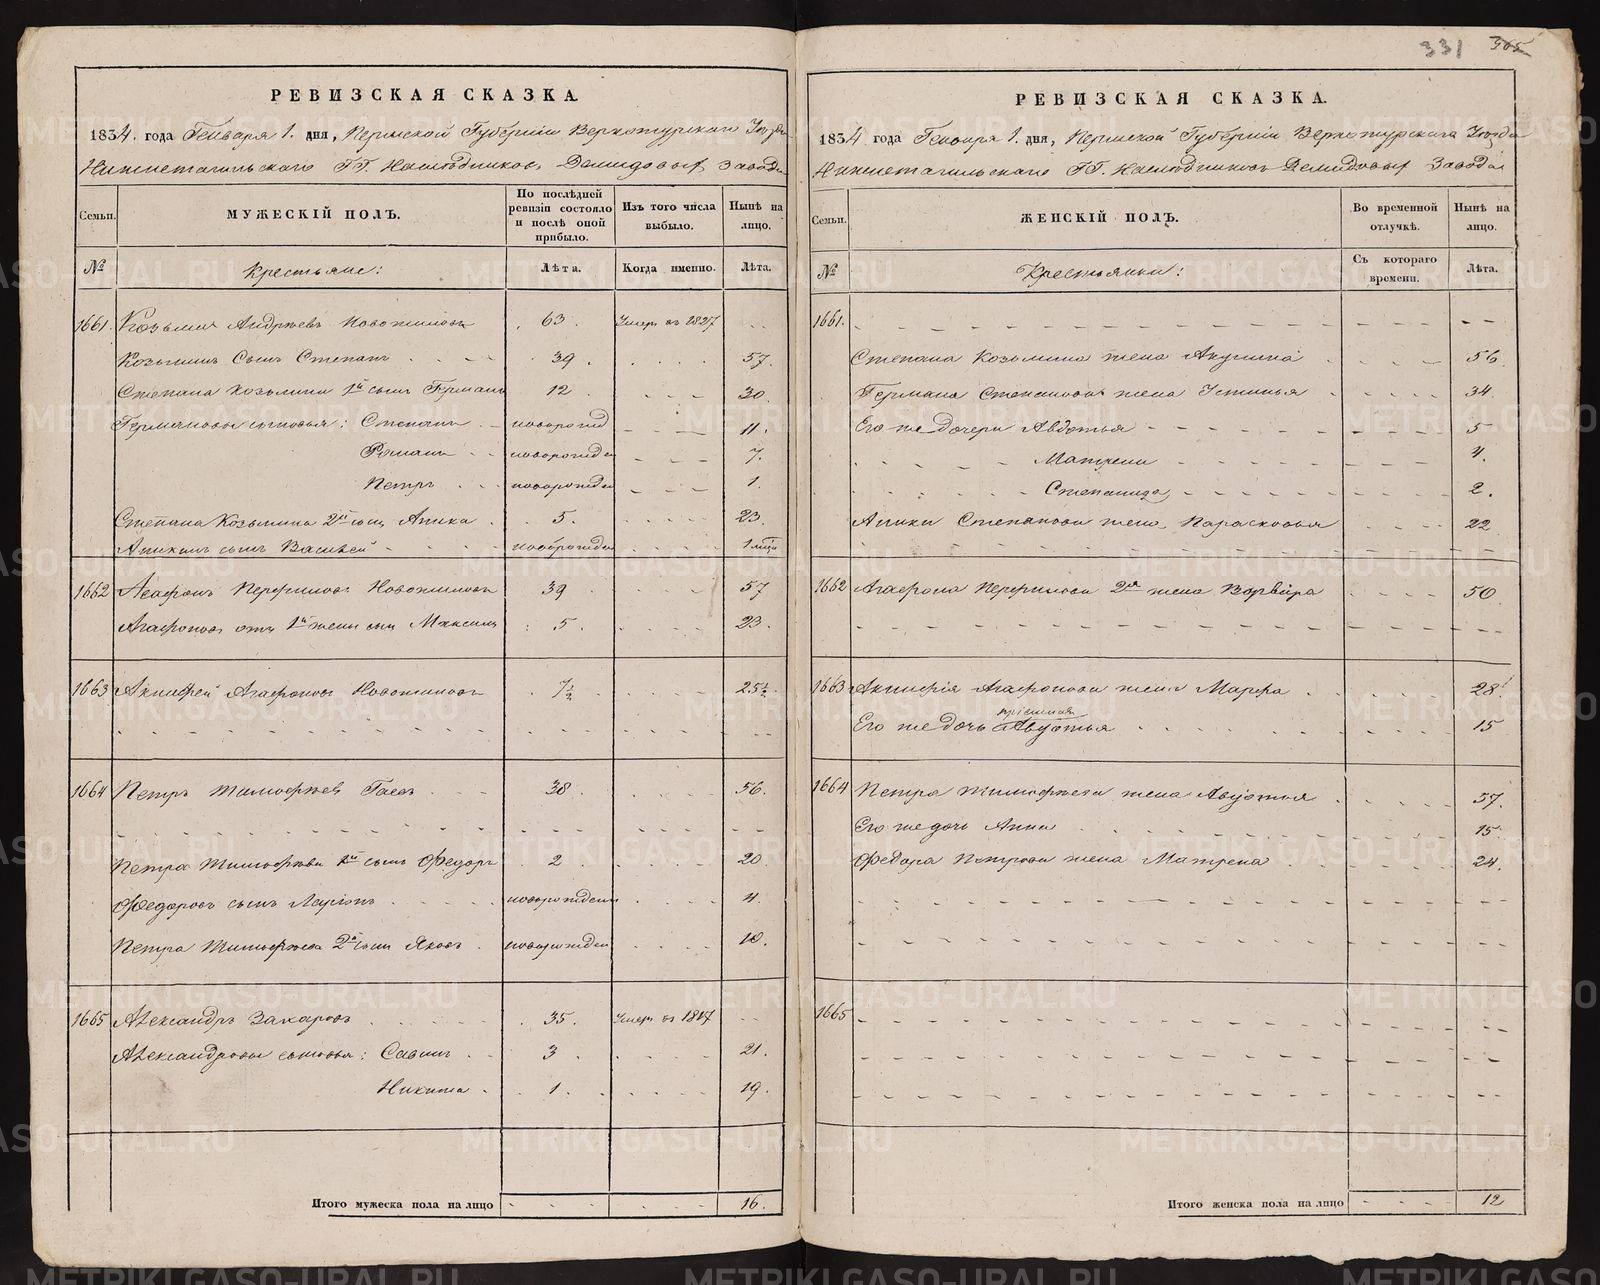 331 365
РЕВИЗСКАЯ СКАЗКА.
1834. года Генваря 1. дня, Пермской Губернiи Верхотурскаго Уѣзда
Нижнетагильскаго ГГ. Наслѣдниковъ Демидовыхъ Завода
Семьи. МУЖЕСКІЙ ПОЛЪ. По послѣдней ревизіи состояло и послѣ оной прибыло. Изъ того числа выбыло. Нынѣ на лицо.
№ Крестьяне: Лѣта. Когда именно. Лѣта.
1661. Козьма Андрѣевъ 63. Умеръ въ 1827
Козьминъ сынъ Степанъ 39. 57.
Степана Козьмина 1й сынъ Германъ 12 30.
Германовы сыновья: Степанъ новорожд 11.
Романъ новорожден 7.
Петръ новорожден 1.
Степана Козьмина 2й сынъ Аника 5. 23.
Аникинъ сынъ Василей новорожден 1 мѣся
1662 Агафонъ Перфиловъ 39 57
Агафоновъ отъ 1й жены сынъ Максимъ 5. 23.
1663 Акинфей Агафоновъ 7½ 25½
1664 Петръ Тимофѣевъ 38. 56.
Петра Тимофѣева 1й сынъ Федоръ 2 20
Федоровъ сынъ Ларіонъ новорожденъ 4.
Петра Тимофѣева 2й сынъ Яковъ новорожден 10.
1665 Александръ Захаровъ 35. Умеръ въ 1817
Александровы сыновья: Савинъ 3 21.
Никита 1. 19.
Итого мужеска пола на лицо 16.
РЕВИЗСКАЯ СКАЗКА.
1834 года Генваря 1. дня, Пермской Губернiи Верхотурскаго Уѣзда
Нижнетагильскаго ГГ. Наслѣдниковъ Демидовыхъ Завода
Семьи. ЖЕНСКІЙ ПОЛЪ. Во временной отлучкѣ. Нынѣ на лицо.
№ Крестьянки: Съ котораго времени. Лѣта.
1661.
Степана Козьмина жена Акулина 56
Германа Степанова жена Устинья 34.
Его же дочери Авдотья 5
Матрена 4.
Степанида 2.
Аники Степанова жена Парасковья 22
1662 Агафона Перфилова 2я жена Варвара 50.
1663 Акинфія Агафонова жена Марфа 28
Его же дочь пріимная Авдотья 15
1664 Петра Тимофѣева жена Авдотья 57.
Его же дочь Анна 15.
Федора Петрова жена Матрена 24.
1665
Итого женска пола на лицо 12
METRIKI.GASO-URAL.RU